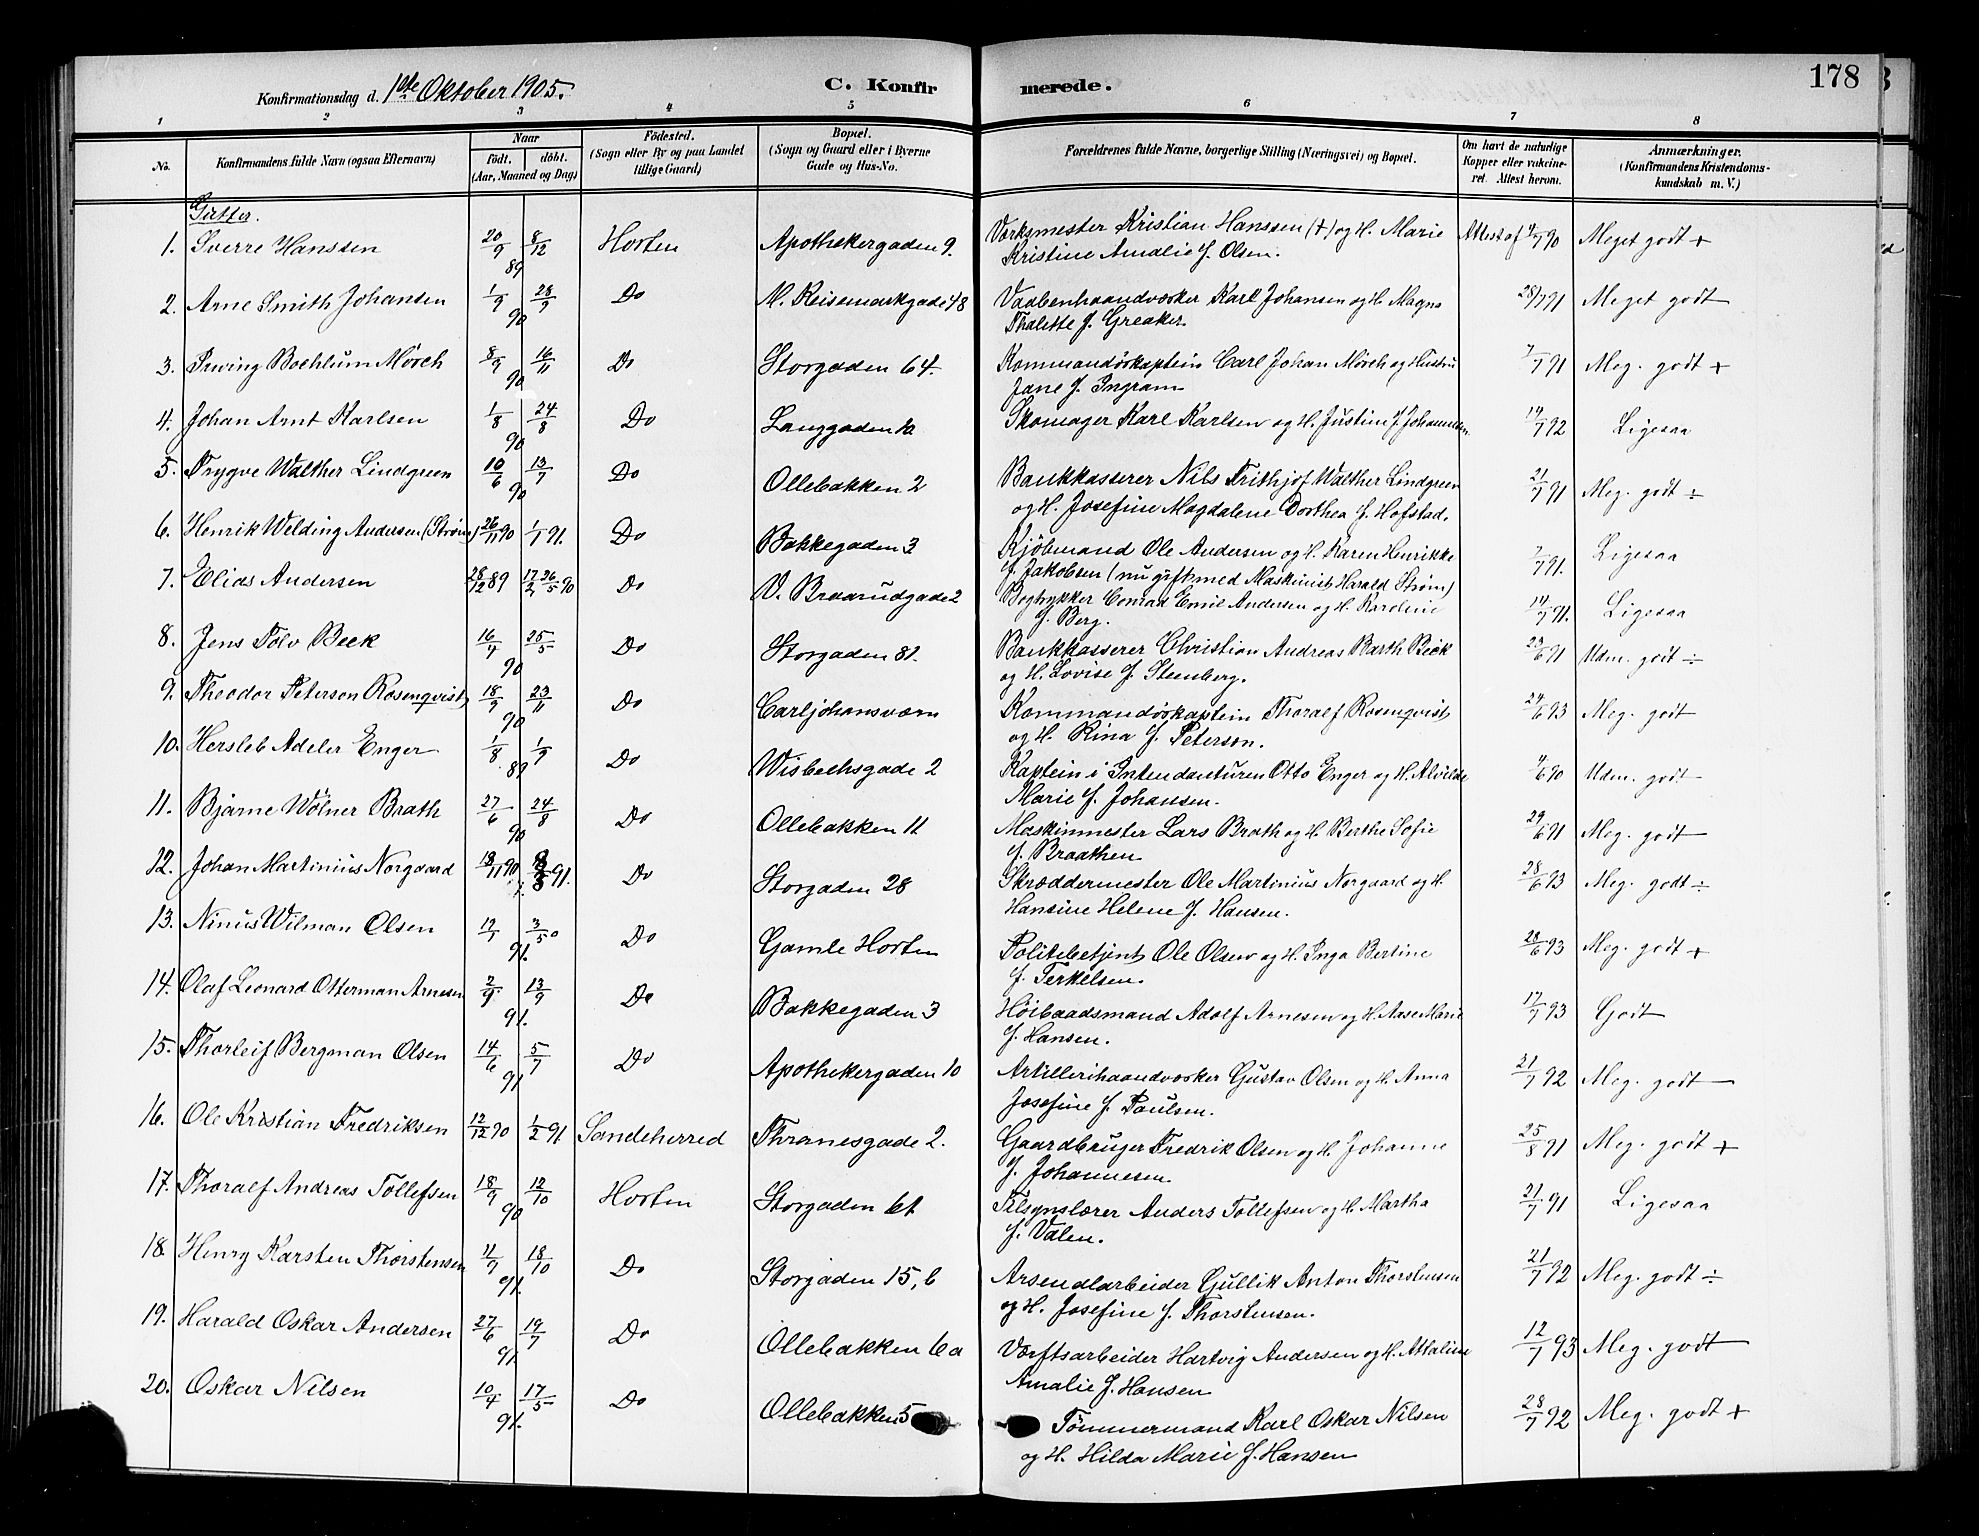 Konfirmationsdag d. 1ste Oktober 1905. C. Konfirmerede. 178
1 2 3 4 5 6 7 8
No. Konfirmandens fulde Navn (ogsaa Efternavn) Naar født. døbt. (Aar, Maaned og Dag) Fødested. (Sogn eller By og paa Landet tillige Gaard) Bopæl. (Sogn og Gaard eller i Byerne Gade og Hus-No. Forældrenes fulde Navne, borgerlige Stilling (Næringsvei) og Bopæl. Om havt de naturlige Kopper eller vaccineret. Attest herom. Anmærkninger. (Konfirmandens Kristendomskundskab m. V.)
Gutter.
1. Sverre Hanssen 20/9 89 8/12 Horten Apothekergaden 9. Værksmester Kristian Hanssen (+) og H. Marie Attest af 90 Meget godt +
Kristine Amalie f. Olsen.
2. Arne Smith Johansen 1/9 90 28/9 Do N. Keisemarkgade 48 Vaabenhaandværker Karl Johansen og H. Magna 28/7 91 Meget godt
Thalette f. Greaker.
3. Irving Bochlum Mörch 8/9 90 16/11 Do Storgaden 64. Kommandörkaptein Carl Johan Mörch og Hustru 7/7 91 Meg. godt +
Jane f. Ingram
4. Johan Arnt Karlsen 1/8 90 24/8 Do Langgaden 10 Skomager Karl Karlsen og H. Justine f. Johannesen 14/7 92 Ligesaa
5. Trygve Walther Lindgreen 10/6 90 13/7 Do Ollebakken 2 Bankkasserer Nils Frithjof Walther Lindgreen 21/7 91 Meg. godt ÷
og H. Josefine Magdalene Dorthea f. Hofstad.
6. Henrik Welding Andersen (Strøm) 26/11 90 1/1 91. Do Bakkegaden 3 Kjöbmand Ole Andersen og H. Karen Henrikke 7/7 91. Ligesaa
f. Jakobsen (nu gift med Maskinist Harald Strøm)
7. Elias Andersen 28/12 89 17/2 26/5 90 Do V. Braarudgade 2 Bogtrykker Conrad Emil Andersen og H. Karoline 14/7 91. Ligesaa
f. Berg.
8. Jens Tolv Beck 16/4 90 25/5 Do Storgaden 81. Bankkasserer Christian Andreas Barth Beck 23/6 91 Udm. godt ÷
og H. Lovise f. Steenberg.
9. Theodor Peterson Rosenqvist 18/9 90 23/11 Do Carljohansværn Kommandörkaptein Thoralf Rosenqvist 24/6 93 Meg. godt
og H. Rina f. Peterson.
10. Hersleb Adeler Enger 1/8 89 1/9 Do Wisbechsgade 2 Kaptein i Intendanturen Otto Enger og H. Alvilde 90 Udm. godt
Marie f. Johansen.
11. Bjarne Wölner Brath 27/6 90 24/8 Do Ollebakken 11 Maskinmester Lars Brath og H. Berthe Sofie 29/6 91 Meg. godt
f. Braathen
12. Johan Martinius Norgaard 18/11 90 8/3 91. Do Storgaden 28 Skræddermester Ole Martinius Norgaard og H. 28/6 93 Meg. godt ÷
Hansine Helene f. Hansen.
13. Ninus Wilman Olsen 91. 3/5 Do Gamle Horten Politibetjent Ole Olsen og H. Inga Bertine 28/6 93 Meg. godt +
f. Terkelsen.
14. Olaf Leonard Otterman Arnesen 2/9 91. 13/9 Do Bakkegaden 3 Höibaadsmand Adolf Arnesen og H. Aase Marie 17/7 93 Godt
f. Hansen.
15. Thorleif Bergman Olsen 14/6 91 5/7 Do Apothekergaden 10 Artillerihaandværker Gustav Olsen og H. Anna 21/7 92 Meg. godt
Josefine f. Paulsen.
16. Ole Kristian Fredriksen 12/12 90 1/2 91 Sandeherred Thranesgade 2. Gaardbruger Fredrik Olsen og H. Johanne 25/8 91 Meg. godt +
f. Johannesen.
17. Thoralf Andreas Tollefsen 18/9 90 12/10 Horten Storgaden 61 Tilsynslærer Anders Tollefsen og H. Martha 21/7 91 Ligesaa
f. Valen.
18. Henry Karsten Thorstensen 11/9 91. 18/10 Do Storgaden 15, b Arsenalarbeider Gullik Anton Thorstensen 21/7 92 Meg. godt ÷
og H. Josefine f. Thorstensen.
19. Harald Oskar Andersen 27/6 91. 19/7 Do Ollebakken 6a Værftsarbeider Hartvig Andersen og H. Attaline 12/7 93 Meg. godt
Amalie f. Hansen
20. Oskar Nilsen 10/4 91. 17/5 Do Ollebakken 5 Tömmermand Karl Oskar Nilsen 28/7 92 Meg. godt +
og H. Hilda Marie f. Hansen